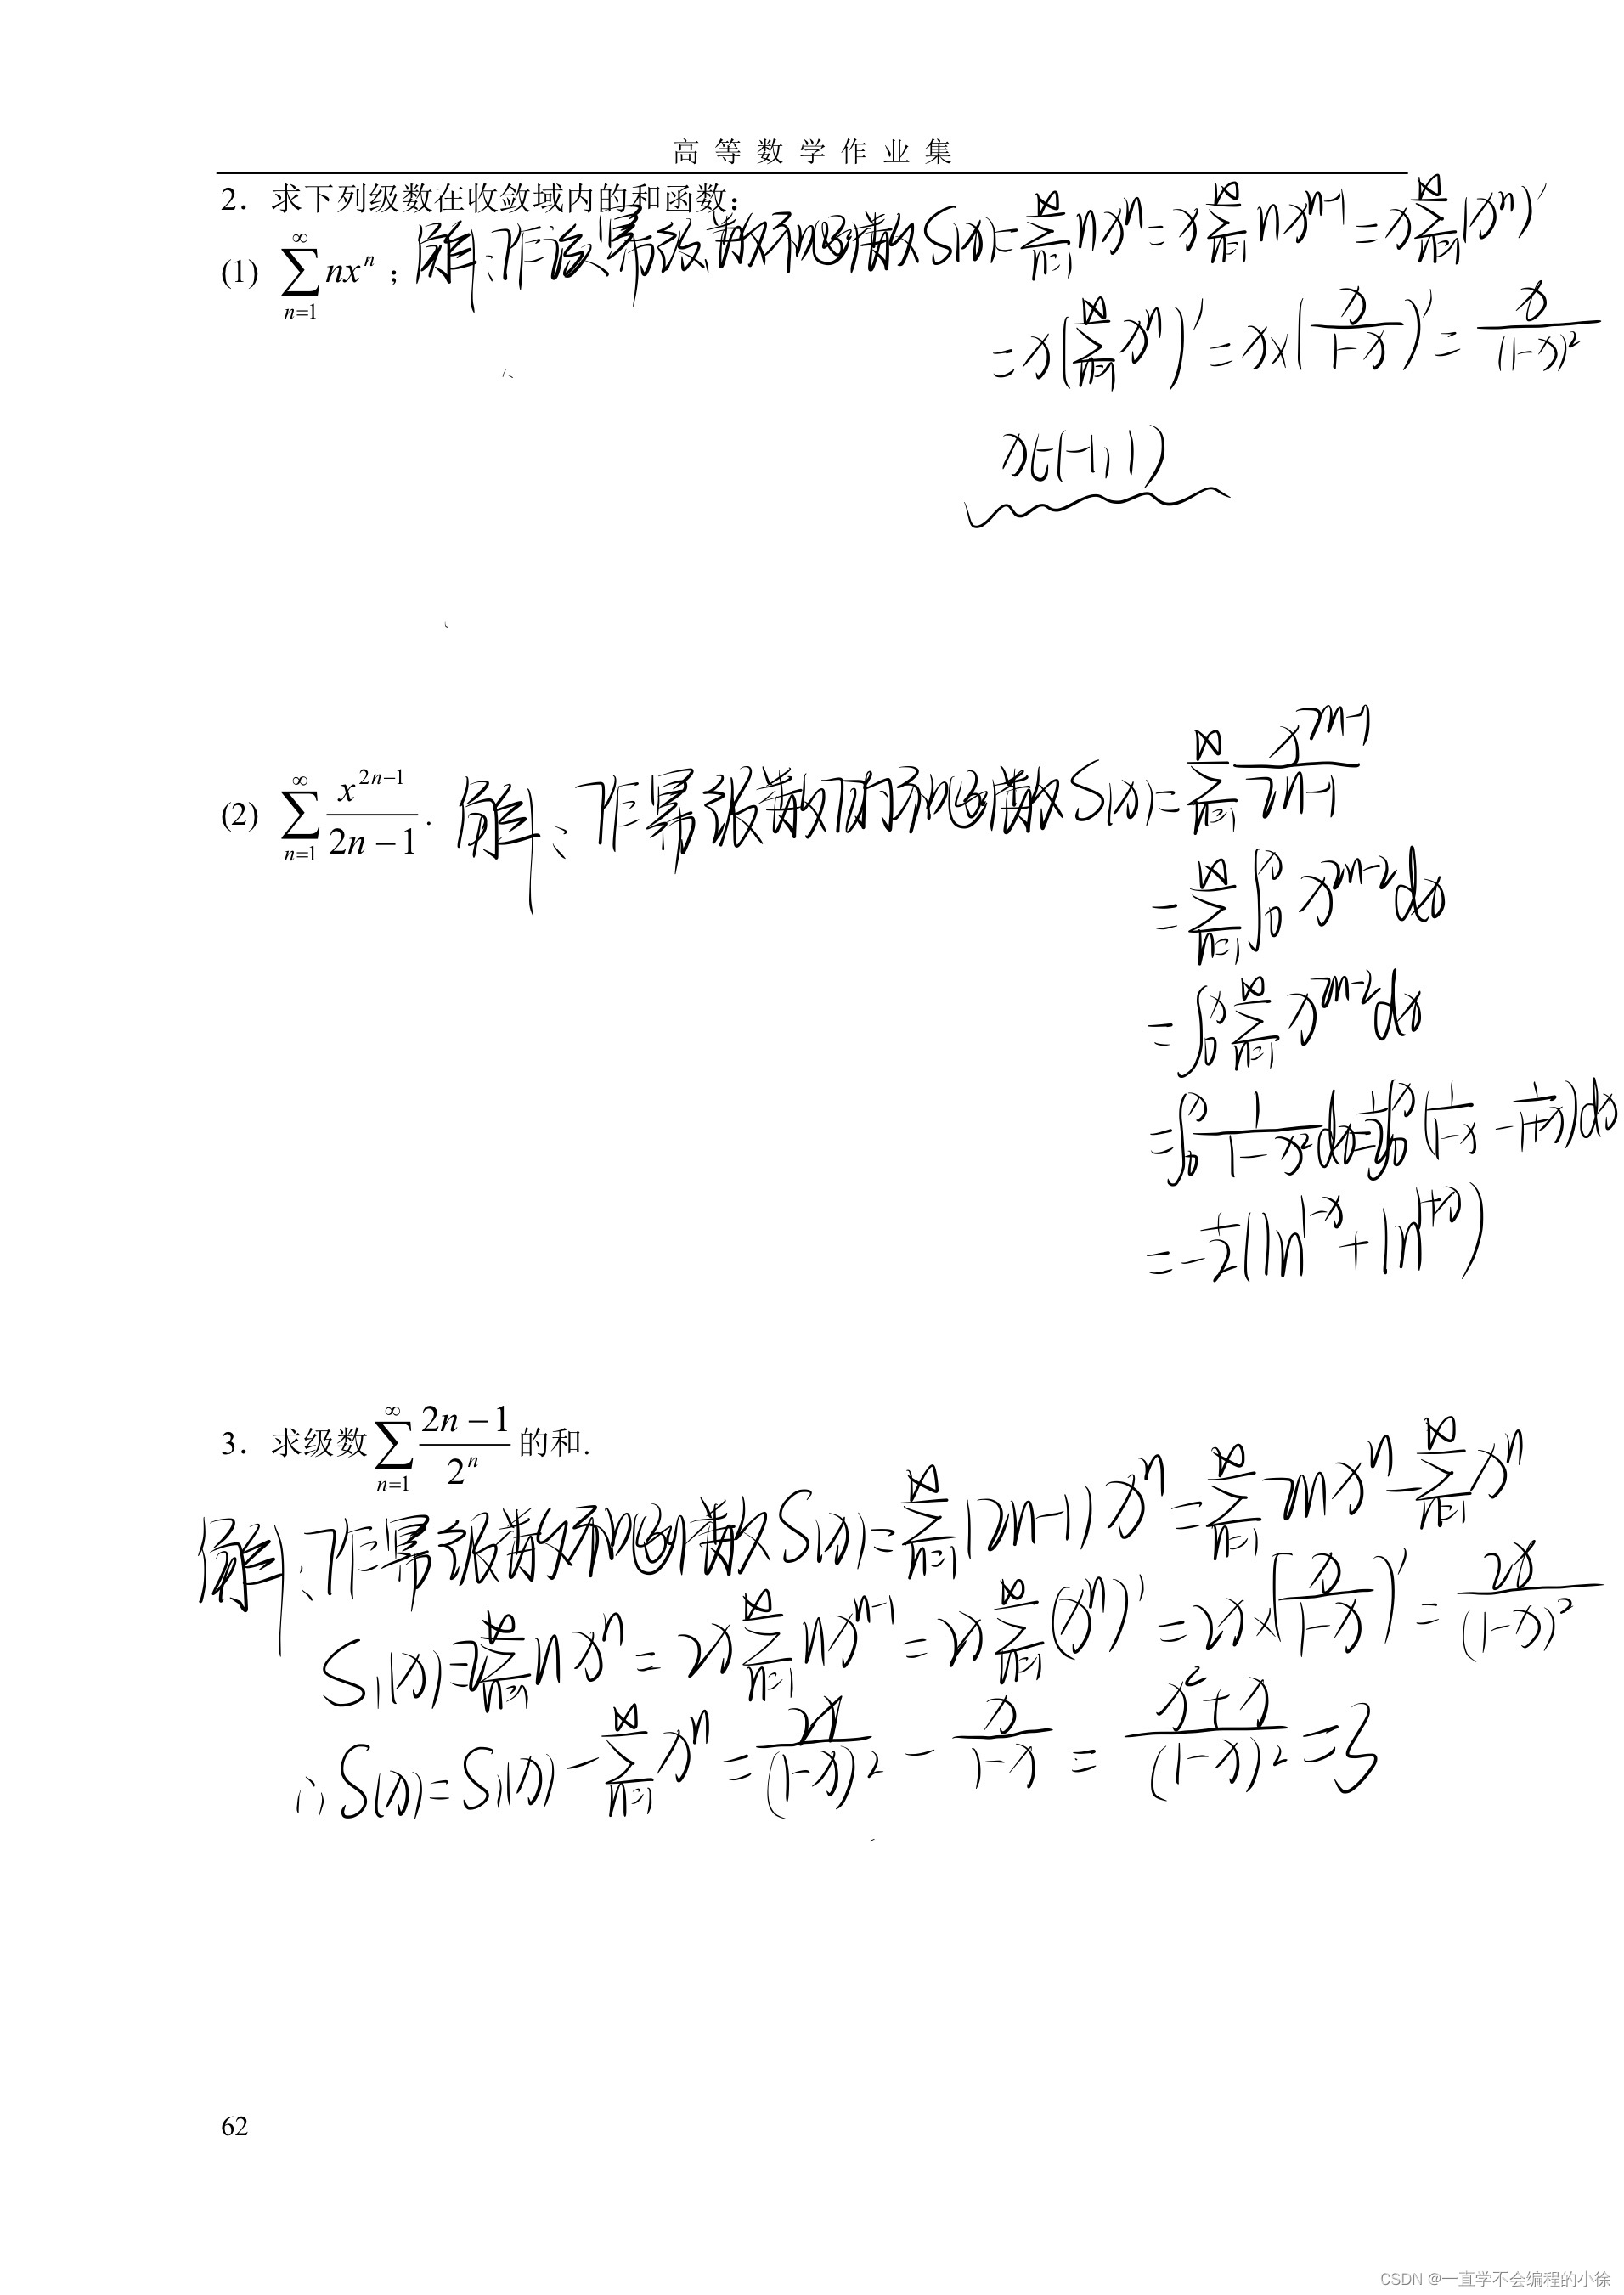 高等数学作业集
2. 求下列级数在收敛域内的和函数:
(1) ∑_{n=1}^{∞} nx^n ; 解:作该幂级数和函数S(x)=∑_{n=1}^{∞} nx^n = x∑_{n=1}^{∞} nx^{n-1} = x∑_{n=1}^{∞} (x^n)′
= x(∑_{n=1}^{∞} x^n)′ = x×(x/(1-x))′ = x/(1-x)^2
x∈(-1,1)
(2) ∑_{n=1}^{∞} x^{2n-1}/(2n-1) . 解:作幂级数的和函数S(x)=∑_{n=1}^{∞} x^{2n-1}/(2n-1)
= ∑_{n=1}^{∞} ∫_0^x x^{2n-2} dx
= ∫_0^x ∑_{n=1}^{∞} x^{2n-2} dx
= ∫_0^x 1/(1-x^2) dx = 1/2 ∫_0^x (1/(1-x) - 1/(1+x)) dx
= -1/2 (ln^{1-x} + ln^{1+x})
3. 求级数 ∑_{n=1}^{∞} (2n-1)/2^n 的和.
解:作幂级数和函数S(x)=∑_{n=1}^{∞} (2n-1) x^n = ∑_{n=1}^{∞} 2nx^n - ∑_{n=1}^{∞} x^n
S_1(x)=2∑_{n=1}^{∞} nx^n = 2x∑_{n=1}^{∞} nx^{n-1} = 2x∑_{n=1}^{∞} (x^n)′ = 2x×(x/(1-x))′ = 2x/(1-x)^2
∴S(x)=S_1(x) - ∑_{n=1}^{∞} x^n = 2x/(1-x)^2 - x/(1-x) = (x^2+x)/(1-x)^2 = 3
62
CSDN @一直学不会编程的小徐